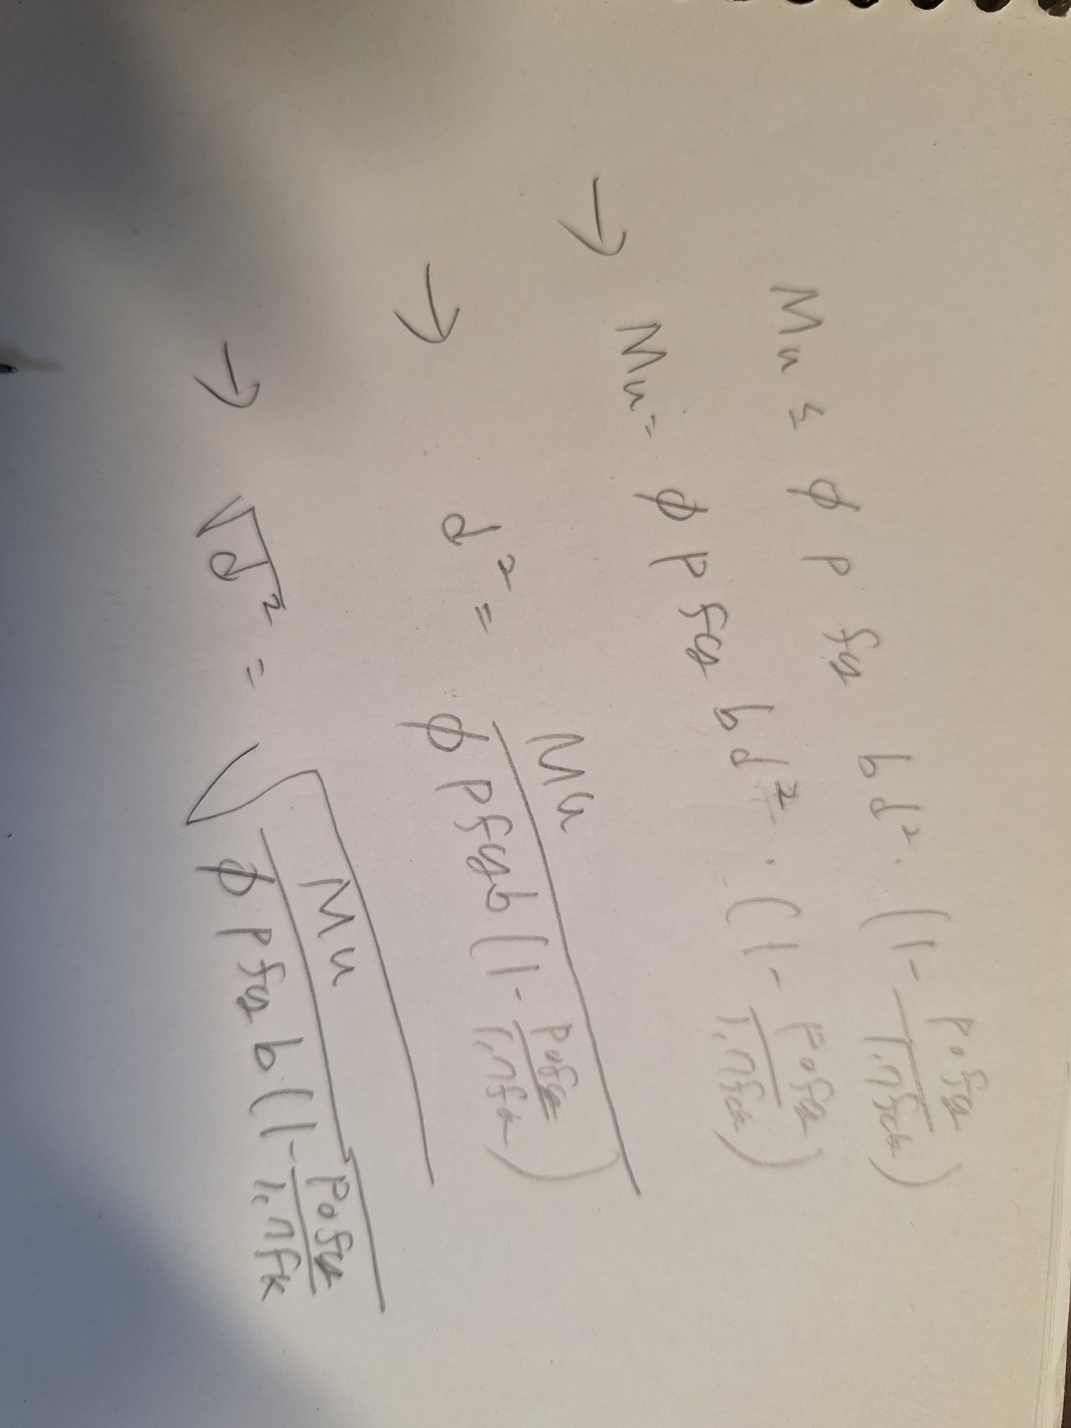 Mu ≤ φ ρ fy bd². (1 - ρofy / 1,7fck)
→ Mu = φ ρ fy bd². (1 - ρofy / 1,7fck)
→ d² = Mu / φ ρ fy b (1 - ρofy / 1,7fk)
→ √d² = √ Mu / φ ρ fy b (1 - ρofy / 1,7fk